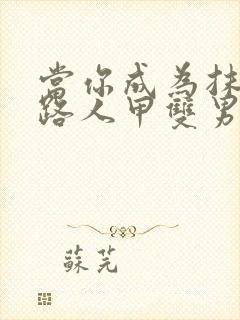 當你成為抹
路人甲雙男
蘇芫